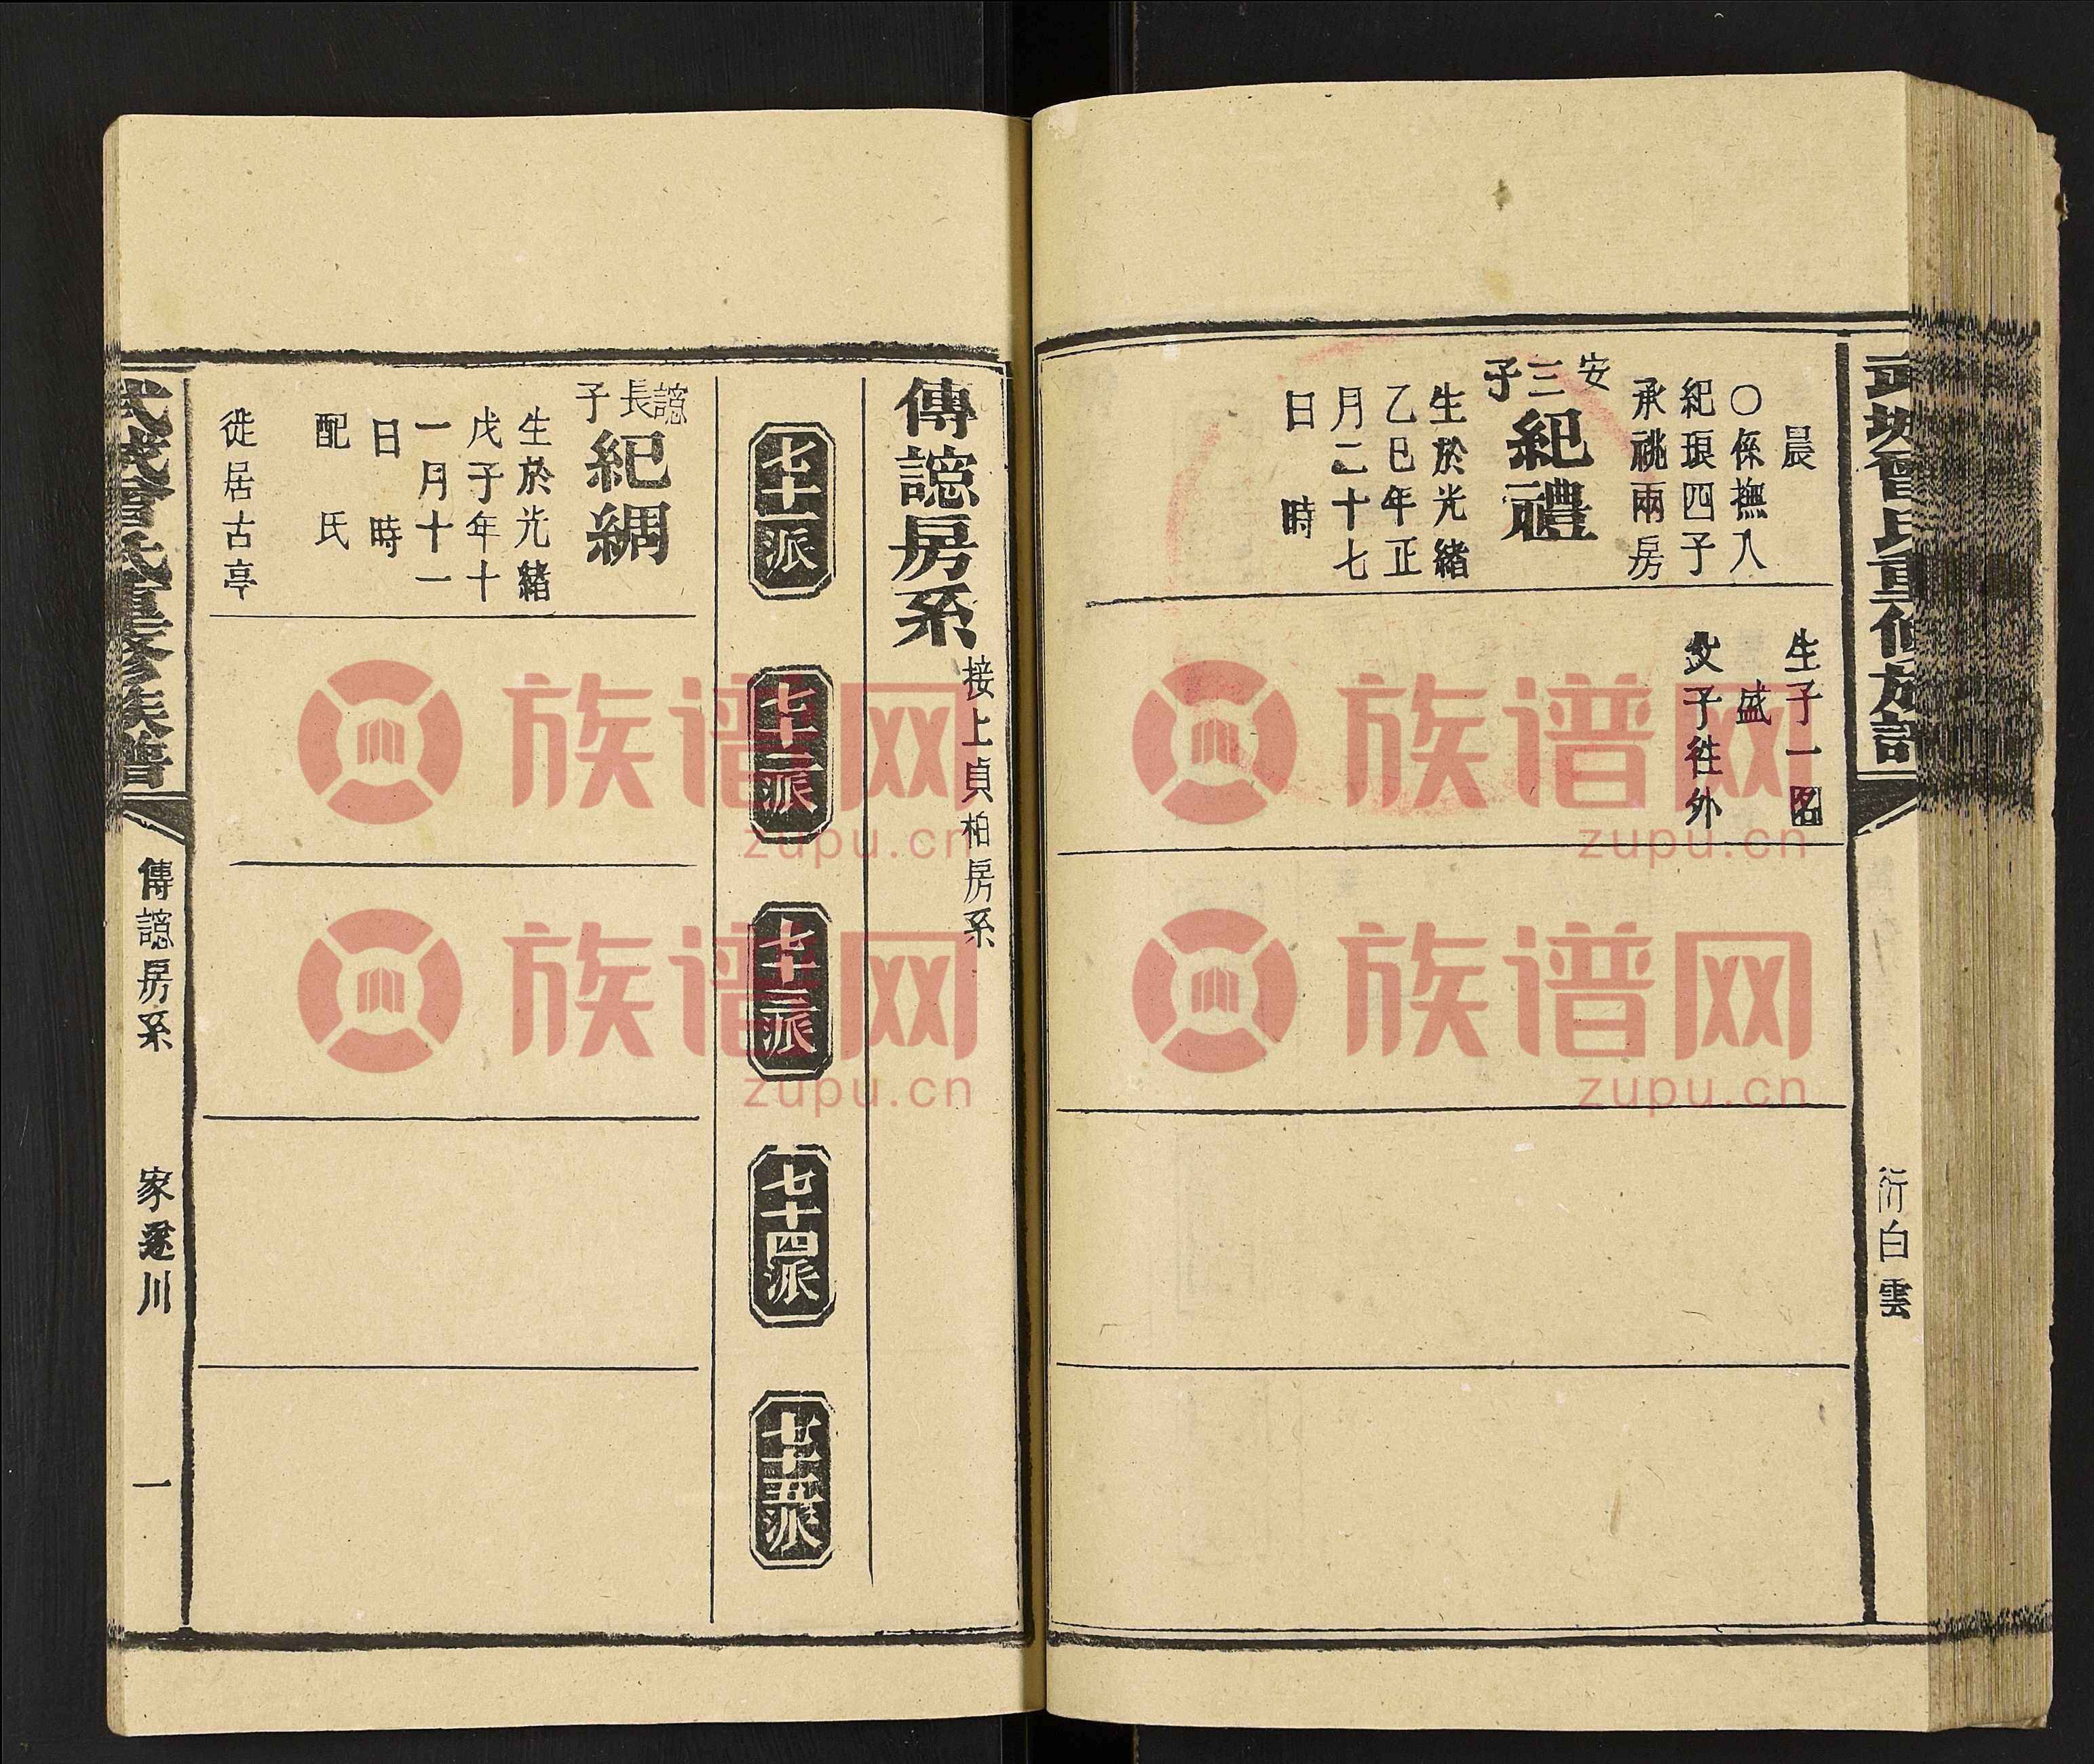 武城曾氏重修族譜
衍白雲
晨
〇係撫入
紀琅四子
承祧兩房
安三子
紀禮
生於光緒
乙巳年正
月二十七
日 時
生子一名
盛
父子徃外
傳諰房系
接上貞柏房系
七十一派
七十二派
七十三派
七十四派
七十五派
諰長子
紀綢
生於光緒
戊子年十
一月十一
日 時
配 氏
徙居古亭
武城曾氏重修族譜
傳諰房系
家遂川
一
族谱网
zupu.cn
族谱网
zupu.cn
族谱网
zupu.cn
族谱网
zupu.cn